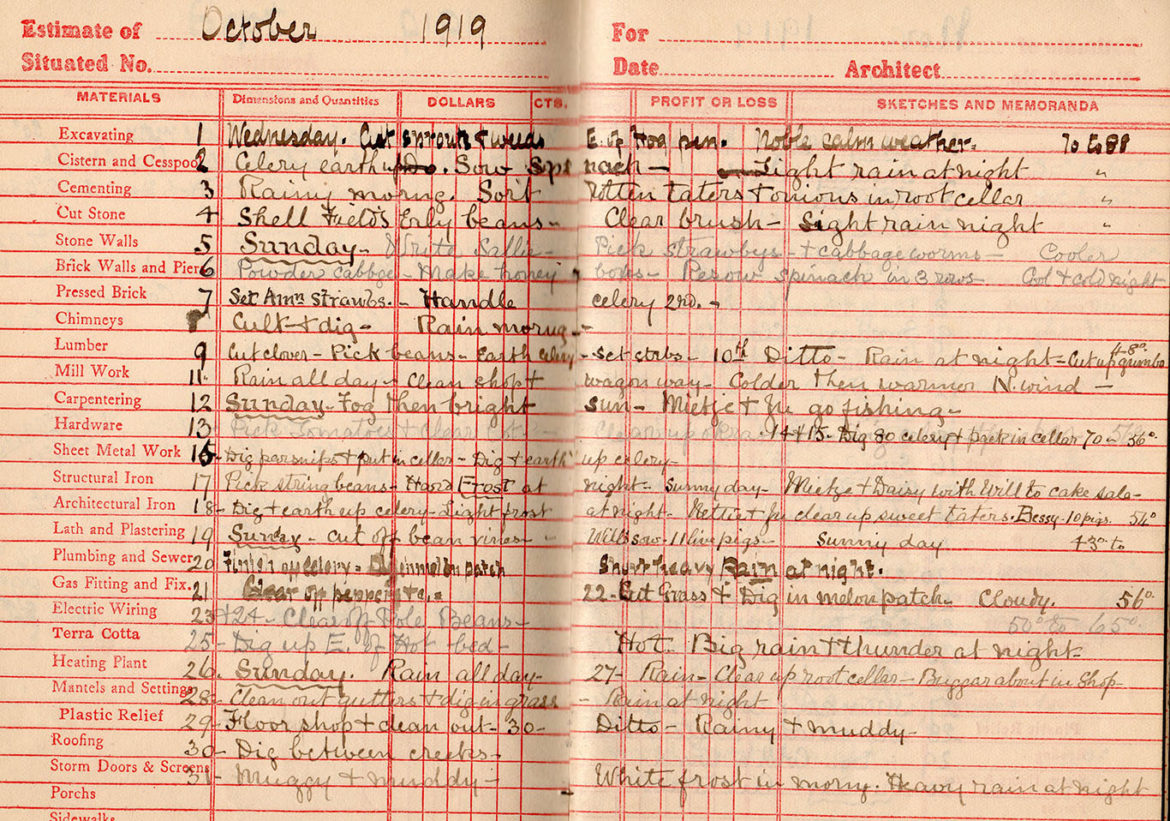 Estimate of October 1919 For
Situated No. Date Architect
MATERIALS Dimensions and Quantities DOLLARS CTS. PROFIT OR LOSS SKETCHES AND MEMORANDA
Excavating 1 Wednesday. Cut sprouts + weeds E. of Hog pen. Noble calm weather. 70 to 88
Cistern and Cesspool 2 Celery earth up. Sow Spinach — Light rain at night "
Cementing 3 Rainy morng. Sort rotten taters + onions in root cellar "
Cut Stone 4 Shell Fields Erly beans - Clear brush - Slight rain night "
Stone Walls 5 Sunday - Write Pick strawbys - + cabbage worms - Cooler
Brick Walls and Pier 6 Powder cabbge - Make honey boxes - Resow spinach in 3 rows Cool + cold night
Pressed Brick 7 Set Amn strawbs. - Handle celery 2nd. -
Chimneys 8 Cult + dig - Rain morng -
Lumber 9 Cut clover - Pick beans - Earth celery - set strbs - 10th Ditto - Rain at night = Cut up gumbo 48°
Mill Work 11 Rain all day - clean shop + wagon way - Colder then warmer N. wind -
Carpentering 12 Sunday - Fog then bright sun - Mietje + Ju go fishing -
Hardware 13 Pick Tomatoes + Clear Clear up okra. 14 + 15 - Dig 80 celery + pack in cellar 70 - 36°
Sheet Metal Work 16 Dig parsnips + put in cellar - Dig + earth up celery -
Structural Iron 17 Pick string beans - Hard Frost at night. Sunny day - Mietje + Daisy with Will to cake sale -
Architectural Iron 18 - Dig + earth up celery - Light frost at night - Nettie + Ju clear up sweet taters. Bessy - 10 pigs. 54°
Lath and Plastering 19 Sunday - cut off bean vines - Wills sow - 11 live pigs - Sunny day 43° to
Plumbing and Sewer 20 Finish off celery = melon patch Short heavy Rain at night.
Gas Fitting and Fix. 21 Clear off peppers 22 - Cut Grass + Dig in melon patch - Cloudy. 56°
Electric Wiring 23 + 24 - Clear off Pole Beans - 50° to 65°
Terra Cotta 25 - Dig up E. of Hot bed - Hot - Big rain + thunder at night -
Heating Plant 26. Sunday. Rain all day - 27 - Rain - Clear up root cellar - Buggar about in Shop -
Mantels and Settings 28 - Clean out gutters + dig in grass - Rain at night
Plastic Relief 29 - Floor shop + clean out - 30 - Ditto - Rainy + muddy -
Roofing 30 - Dig between creeks -
Storm Doors & Screens 31 - Muggy + muddy - White frost in morng. Heavy rain at night
Porchs
Sidewalks